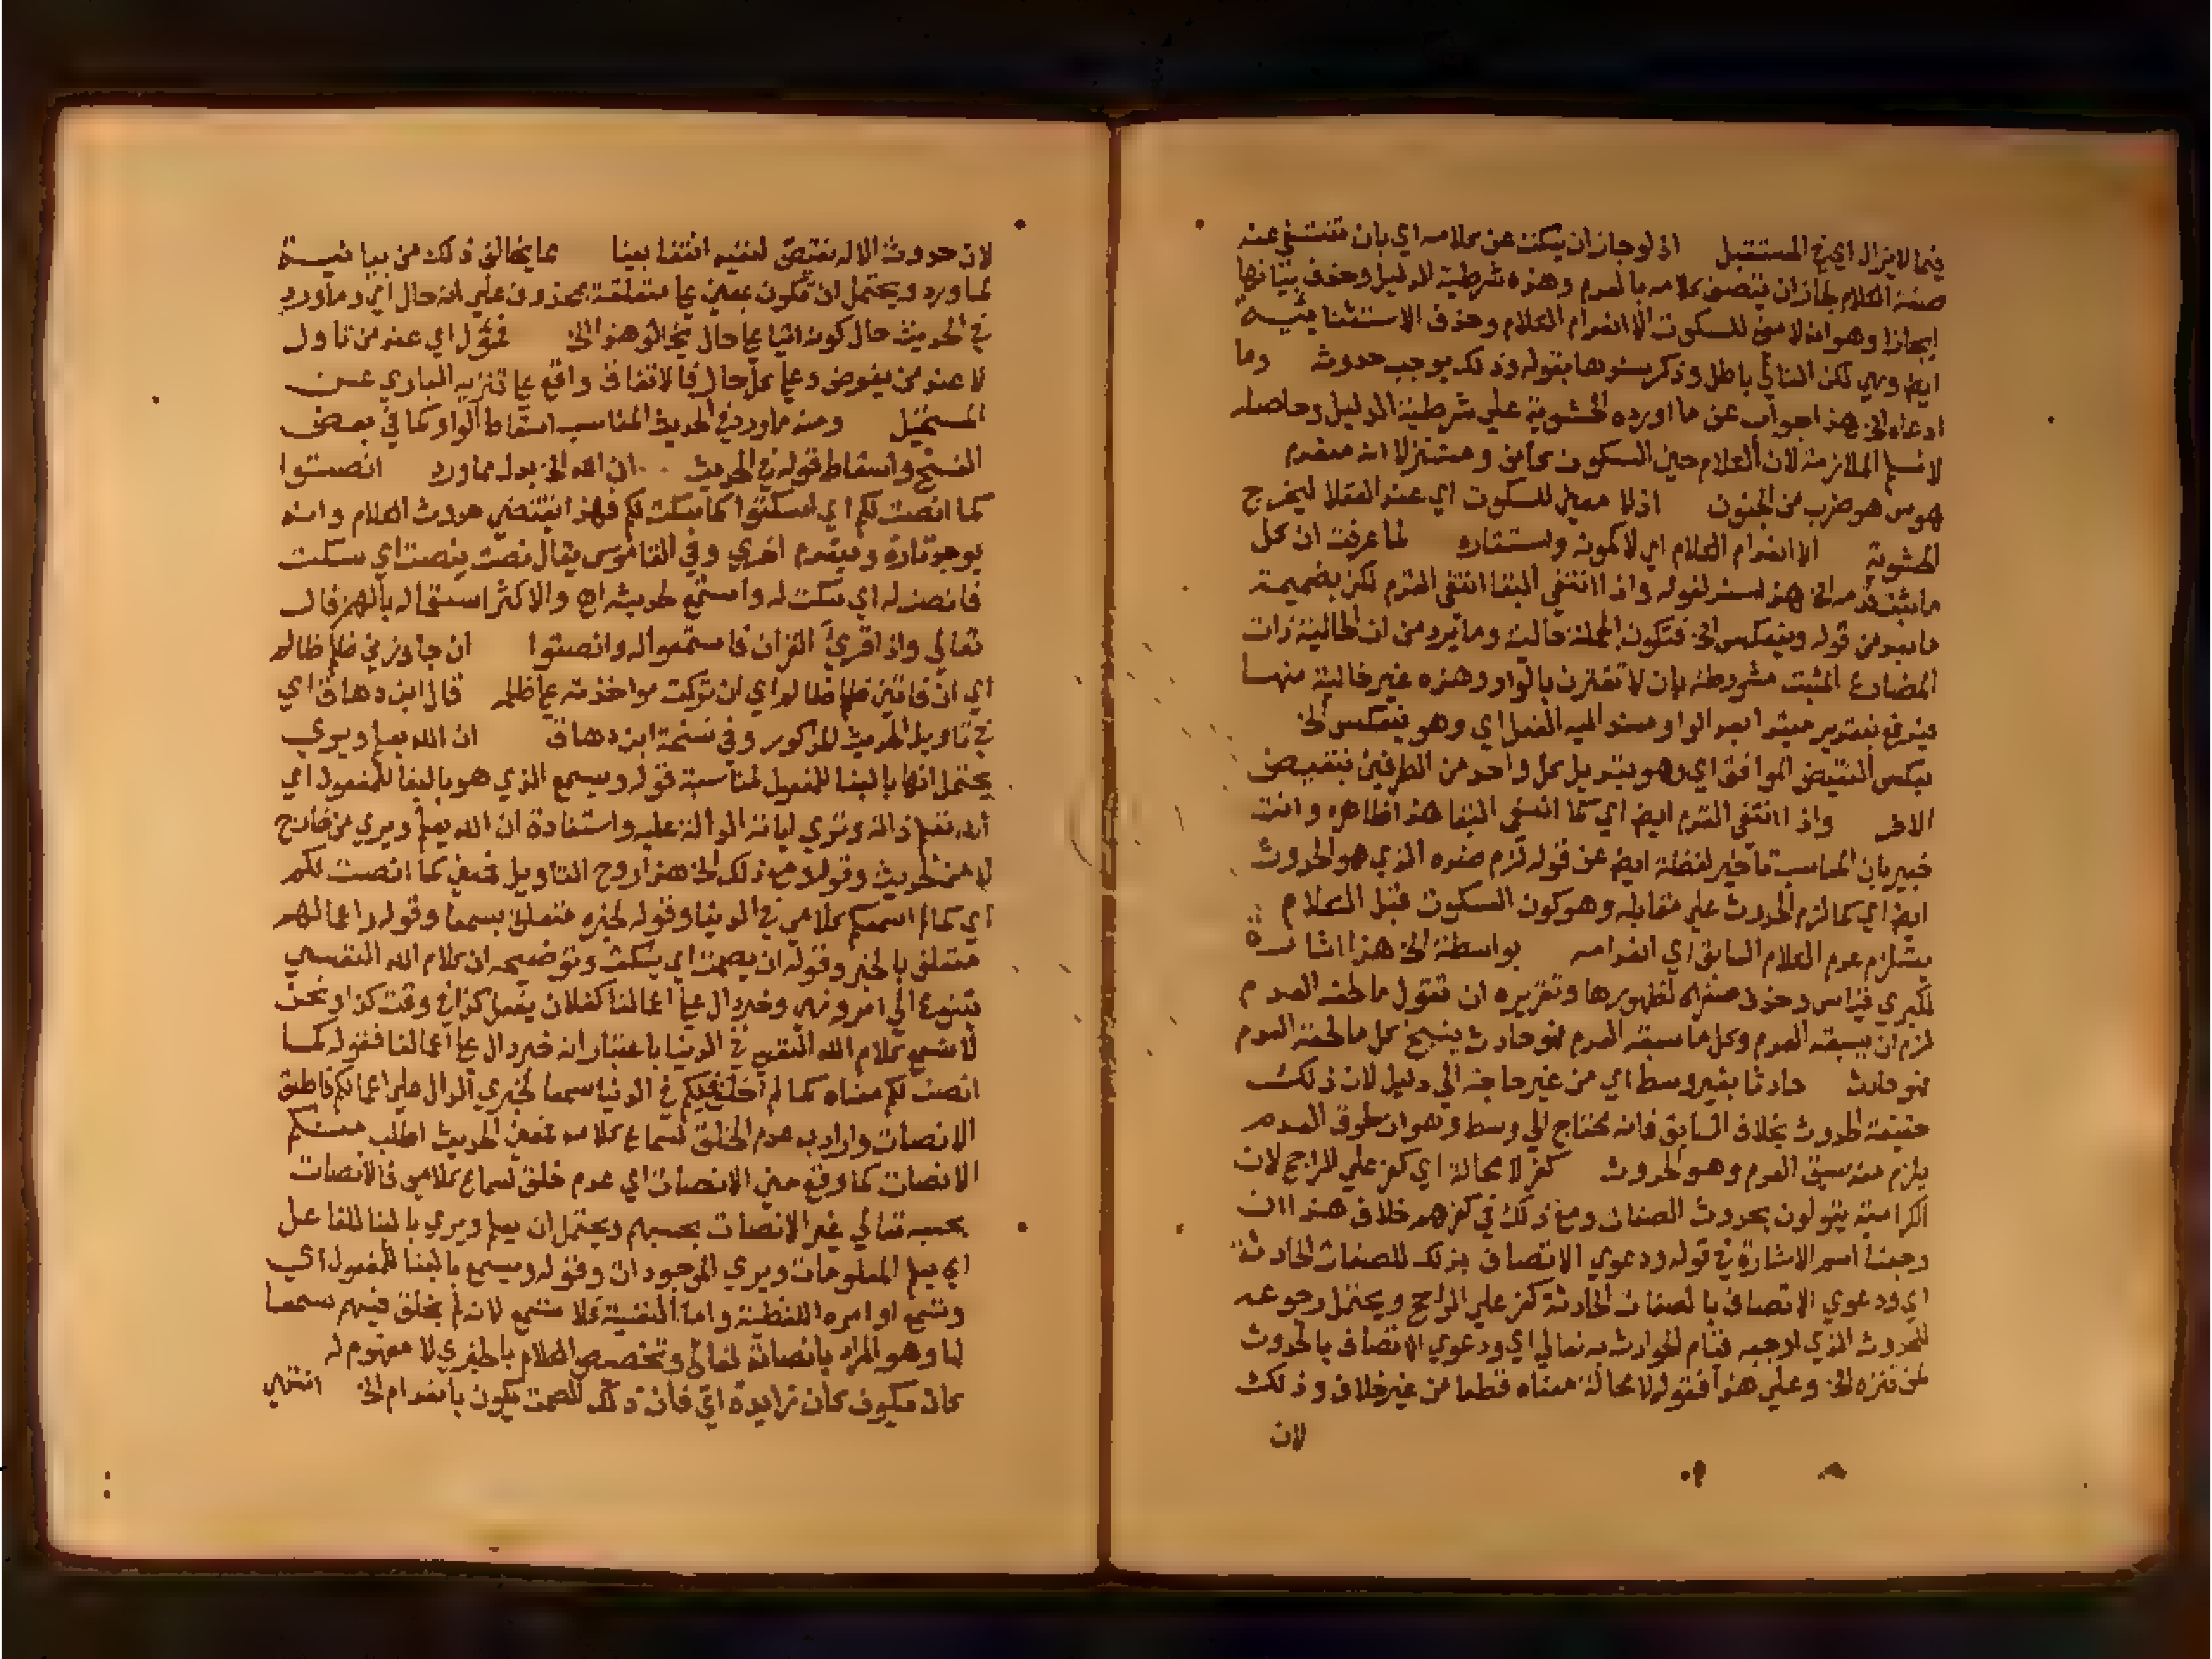 فيما لا يزال اي في المستقبل اذ لو جاز ان يسكت عن كلامه اي بان تنتفي عنه
صفة الكلام لجاز ان يتصف كلامه بالعدم وهذه شرطية الدليل وحذف بيانها
ايجازا وهو انه لا معنى للسكوت الا انعدام الكلام وحذف الاستثنائية
ايضا وهي لكن التالي باطل وذكر سندها بقوله وذلك يوجب حدوث وما
ادعاه الخ هذا جواب عن ما اورده الحشوية على شرطية الدليل وحاصله
لا نسلم الملازمة لان الكلام حين السكون كامن ومستتر لا انه منعدم
هوس هو ضرب من الجنون اذ لا معنى للسكوت اي عند العقلا ليخرج
الحشوية الا انعدام الكلام اي لا كمونه واستتاره لما عرفت ان كل
ما ثبت قدمه الخ هذا سند لقوله واذا انتفى البقا انتفى القدم لكن بضميمة
ما بعد من قوله وينعكس الخ فتكون الجملة حالية وما يرد من ان الحالية ذات
المضارع المثبت مشروطة بان لا تقترن بالواو وهذه غير خالية منها
يندفع بتقدير مبتدا بعد الواو مسند اليه الفعل اي وهو ينعكس الخ
بعكس النقيض الموافق اي وهو تبديل كل واحد من الطرفين بنقيض
الاخر واذا انتفى القدم ايضا اي كما انتفى البقا هذا ظاهره وانت
خبير بان المناسب تاخير لفظة ايضا عن قوله لزم ضده الذي هو الحدوث
ايضا اي كما لزم الحدوث على مقابله وهو كون السكوت قبل الكلام
يستلزم عدم الكلام السابق اي انعدامه بواسطة الخ هذا اشارة
لكبري قياس وحذف صغراه لظهورها وتقريره ان تقول ما لحقه العدم
لزم ان يسبقه العدم وكل ما سبقه العدم فهو حادث ينتج كل ما لحقه العدم
فهو حادث حادثا بغير وسط اي من غير حاجة الي دليل لان ذلك
حقيقة الحدوث بخلاف السابق فانه يحتاج الي وسط وهو ان طرو العدم
يلزم منه سبق العدم وهو الحدوث كفر لا محالة اي كفر علي الراجح لان
الكرامية يقولون بحدوث الصفات ومع ذلك في كفرهم خلاف هذا ان
وجعنا اسم الاشارة في قوله ودعوي الاتصاف بذلك للصفات الحادثة
اي ودعوي الاتصاف بالصفات الحادثة كفر علي الراجح ويحتمل رجوعه
للحدوث الذي اوجبه قيام الحوادث به تعالي اي ودعوي الاتصاف بالحدوث
لمن تنزه الخ وعلي هذا فقوله لا محالة معناه قطعا من غير خلاف وذلك
لان
لان حدوث الاله يقتضي نفيه انتفا بينا عما يخالف ذلك من بيانية
لما ورد ويحتمل ان تكون بمعنى على متعلقة بمحذوف علي انه حال اي وما ورد
في الحديث حال كونه اتيا على حال يخالف هذا الخ فمؤول اي عند من تاول
لا عند من يفوض وعلى كل حال فالاتفاق واقع على تنزيه الباري عن
المستحيل ومنه ما ورد في الحديث المناسب اسقاط الواو كما في بعض
النسخ واسقاط قوله في الحديث ان الله الخ بدل مما ورد انصتوا
كما انصت لكم اي اسكتوا كما سكت لكم فهذا يقتضي حدوث الكلام وانه
يوجد تارة وينعدم اخري وفي القاموس يقال نصت ينصت اي سكت
فانصت له اي سكت له واستمع لحديثه اهـ والاكثر استعماله بالهمز قال
تعالي واذا قرئ القران فاستمعوا له وانصتوا ان جاوزني ظلم ظالم
اي ان فاتني ظلم ظالم اي ان تركت مواخذته على ظلمه قال ابن دهاق اي
في تاويل الحديث المذكور وفي نسخة ابن دهاق ان الله يعلم ويري
يحتمل انها بالبنا للمفعول لمناسبة قوله ويسمع الذي هو بالبنا للمفعول اي
انه تعلم ذاته وتري لياته الدالة عليه واستفادة ان الله يعلم ويري من خارج
لا من الحديث وقوله ومع ذلك الخ هذا روح التاويل فمعنى كما انصت لكم
اي كما لم اسمعكم كلامي في الدنيا وقوله لخبره متعلق بسمعا وقوله واعمالهم
متعلق بالخبر وقوله ان يصمت اي يسكت وتوضيحه ان كلام الله النفسي
يتنوع الي امر ونهي وخبر دال على اعمالنا كفلان يفعل كذا في وقت كذا ونحن
لا نسمع كلام الله النفسي في الدنيا باعتبار انه خبر دال على اعمالنا فقوله كما
انصت لكم معناه كما لم اخلق فيكم في الدنيا سمعا لخبري الدال علي اعمالكم فاطلق
الانصات واراد به عدم الخلق لسماع كلامه فمعنى الحديث اطلب منكم
الانصات كما وقع مني الانصات اي عدم خلق لسماع كلامي فالانصات
بحسبه تعالي غير الانصات بحسبهم ويحتمل ان يعلم ويري بالبنا للفاعل
اي يعلم المعلومات ويري الموجودات وقوله ويسمع بالبنا للمفعول اي
وتسمع اوامره اللفظية واما النفسية فلا تسمع لانه لم يخلق فيهم سمعا
لها وهو المراد بانصاته تعالى وتخصيص الكلام بالخبري لا مفهوم له
كان يكون كان زايدة اي فان ذلك الصمت يكون بانعدام الخ انتهي